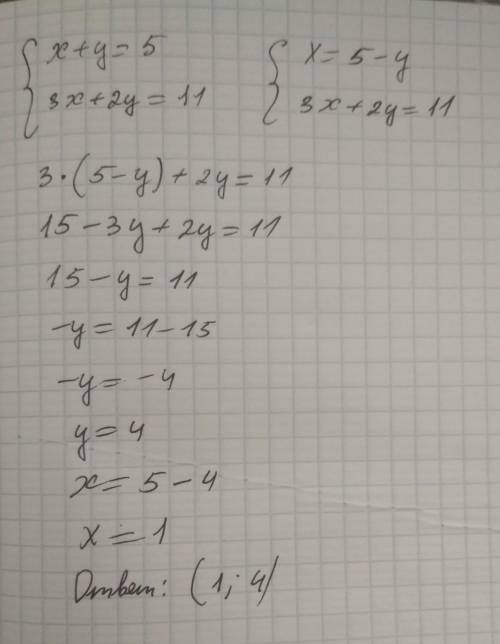 { x+y=5 { x=5-y
3x+2y=11 3x+2y=11
3·(5-y)+2y=11
15-3y+2y=11
15-y=11
-y=11-15
-y=-4
y=4
x=5-4
x=1
Ответ: (1; 4)